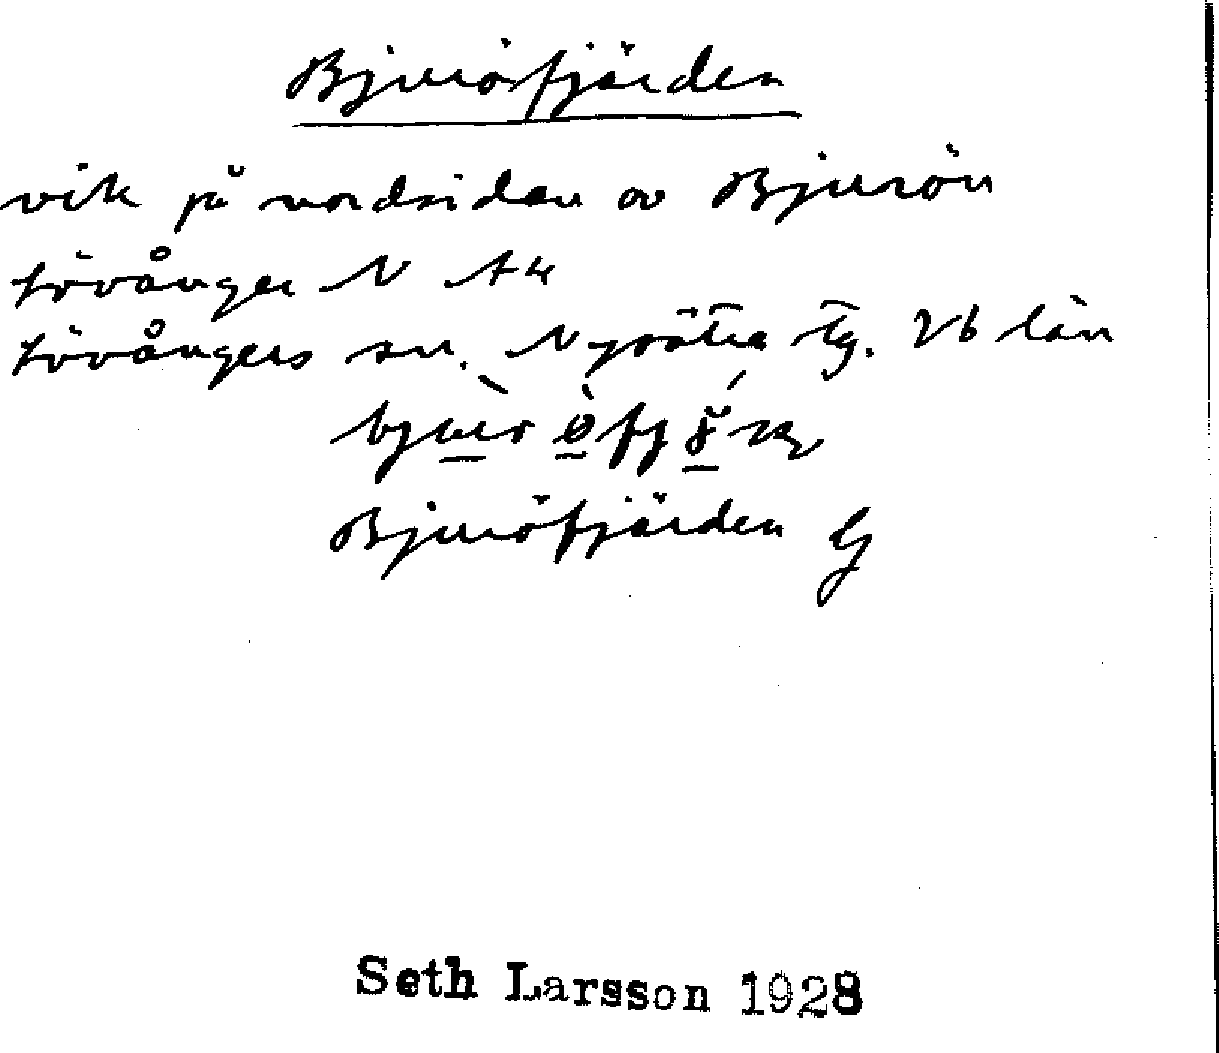 Bjuröfjärden
vik på nordsidan av Bjurön
Lövånger N A4
Lövångers sn. Nysätra tg. Vb län
Bjuröfjärden G
Seth Larsson 1928